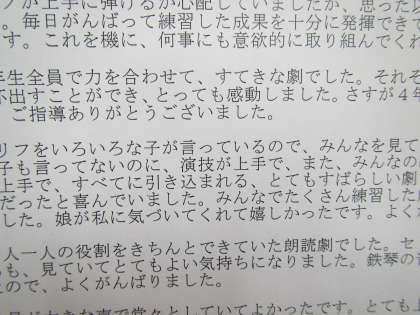 ノが上手に弾けるか心配していましたが、思った以
。毎日がんばって練習した成果を十分に発揮でき
す。これを機に、何事にも意欲的に取り組んでくれ
年生全員で力を合わせて、すてきな劇でした。それぞ
示出すことができ、とっても感動しました。さすが４年
ご指導ありがとうございました。
リフをいろいろな子が言っているので、みんなを見て
子も言ってないのに、演技が上手で、また、みんなの
上手で、すべてに引き込まれる、とてもすばらしい劇
だったと喜んでいました。みんなでたくさん練習した
した。娘が私に気づいてくれて嬉しかったです。よく
人一人の役割をきちんとできていた朗読劇でした。セ
も、見ていてとてもよい気持ちになりました。鉄琴の
ので、よくがんばりました。
な声で堂々としていてよかったです。とても